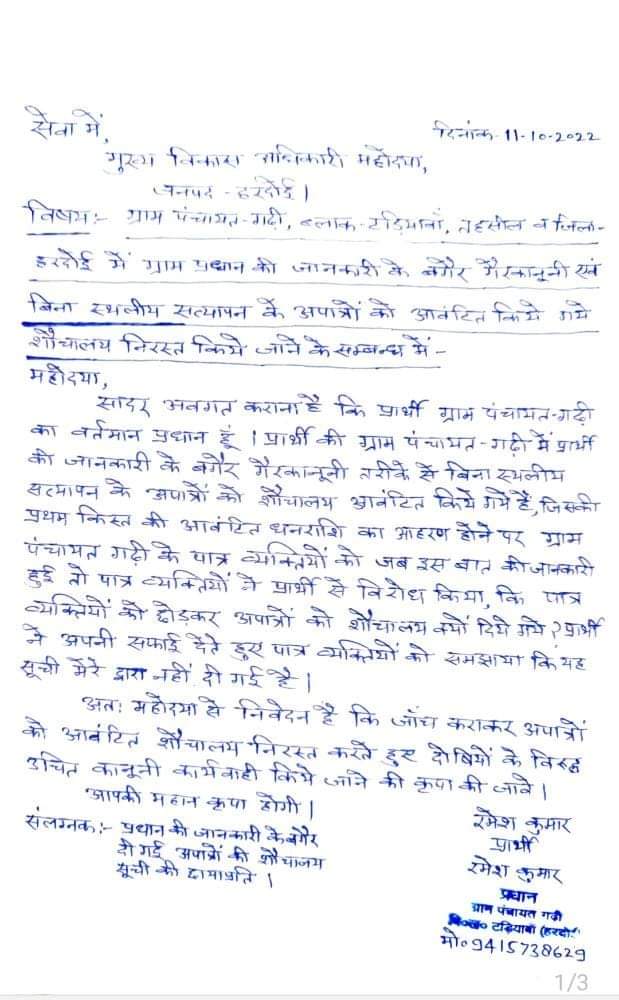 सेवा में,
दिनांक-11-10-2022
मुख्य विकास अधिकारी महोदया,
जनपद - हरदोई।
विषय:- ग्राम पंचायत-गढ़ी, ब्लाक-टड़ियावां, तहसील व जिला-
हरदोई में ग्राम प्रधान की जानकारी के बगैर गैरकानूनी एवं
बिना स्थलीय सत्यापन के अपात्रों को आवंटित किये गये
शौचालय निरस्त किये जाने के सम्बन्ध में -
महोदया,
सादर अवगत कराना है कि प्रार्थी ग्राम पंचायत-गढ़ी
का वर्तमान प्रधान हूं। प्रार्थी की ग्राम पंचायत-गढ़ी में प्रार्थी
की जानकारी के बगैर गैरकानूनी तरीके से बिना स्थलीय
सत्यापन के अपात्रों को शौचालय आवंटित किये गये हैं, जिसकी
प्रथम किस्त की आवंटित धनराशि का आहरण होने पर ग्राम
पंचायत गढ़ी के पात्र व्यक्तियों को जब इस बात की जानकारी
हुई तो पात्र व्यक्तियों ने प्रार्थी से विरोध किया, कि पात्र
व्यक्तियों को छोड़कर अपात्रों को शौचालय क्यों दिये गये? प्रार्थी
ने अपनी सफाई देते हुए पात्र व्यक्तियों को समझाया कि यह
सूची मेरे द्वारा नहीं दी गई है।
अतः महोदया से निवेदन है कि जाँच कराकर अपात्रों
को आवंटित शौचालय निरस्त करते हुए दोषियों के विरुद्ध
उचित कानूनी कार्यवाही किये जाने की कृपा की जावे।
आपकी महान कृपा होगी।
संलग्नक:- प्रधान की जानकारी के बगैर
दी गई अपात्रों की शौचालय
सूची की छायाप्रति।
रमेश कुमार
प्रार्थी
रमेश कुमार
प्रधान
ग्राम पंचायत गढ़ी
वि०ख० टड़ियावां (हरदोई
मो० 9415738629
1/3